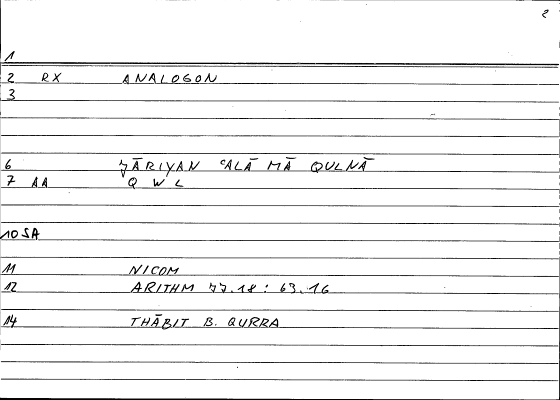 2
1
2 RX ANALOGON
3
6 JĀRIYAN ʿALĀ MĀ QULNĀ
7 AA Q W L
10 SA
11 NICOM
12 ARITHM 77.18 : 63.16
14 THĀBIT B. QURRA